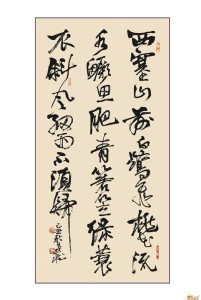 西塞山前白鹭飞桃花流
水鳜鱼肥青箬笠绿蓑
衣斜风细雨不须归